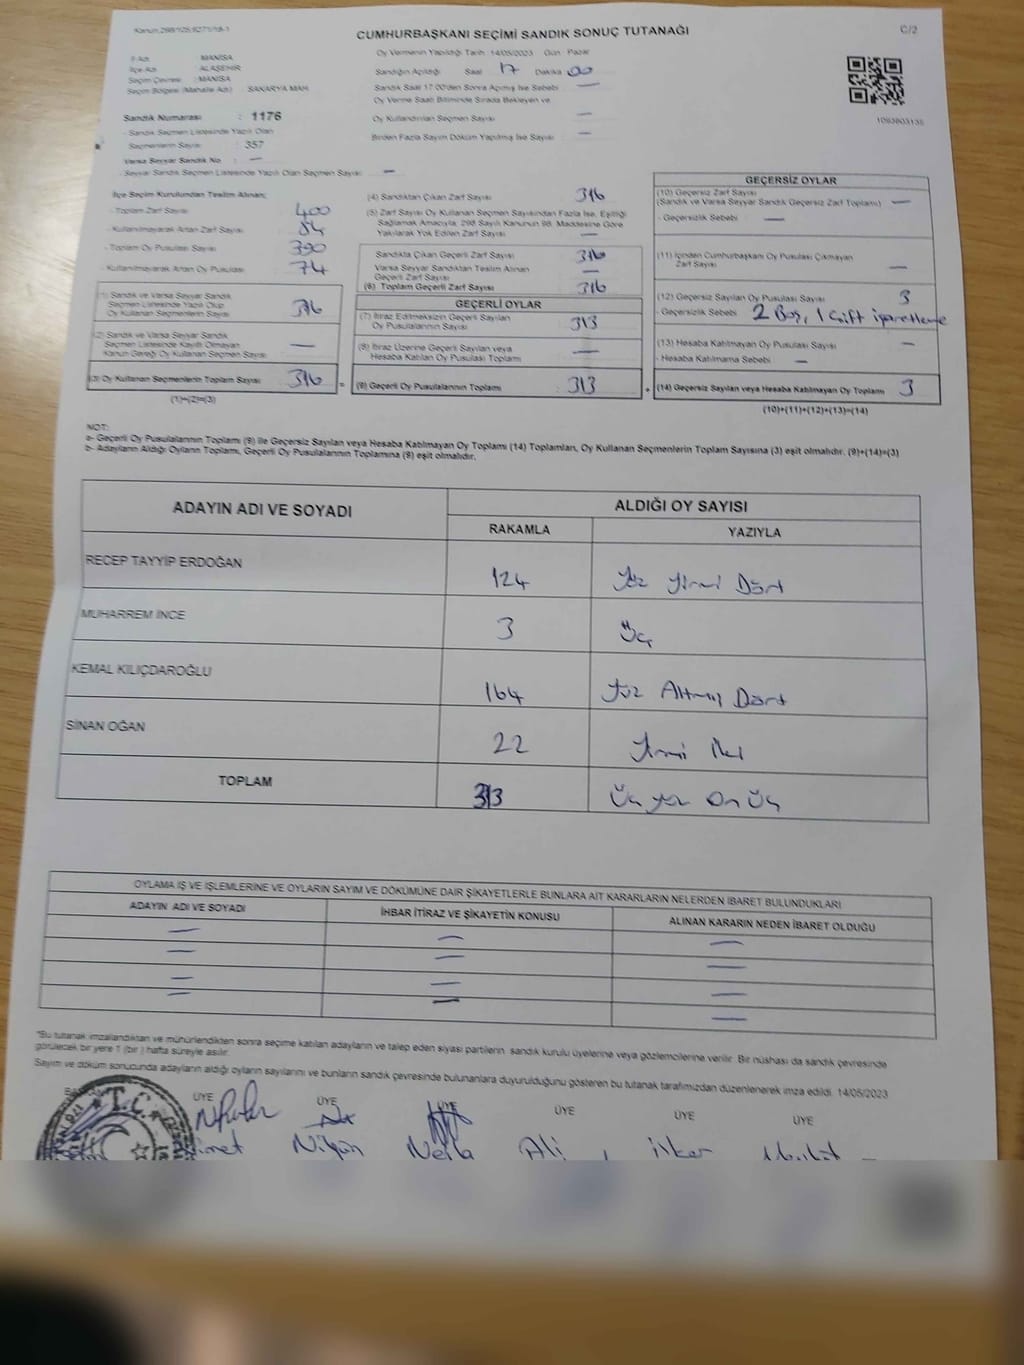 Kanun:298/125;6271/18-1
CUMHURBAŞKANI SEÇİMİ SANDIK SONUÇ TUTANAĞI
C/2
Oy Vermenin Yapıldığı Tarih : 14/05/2023 Gün : Pazar
İl Adı : MANİSA
İlçe Adı : ALAŞEHİR
Seçim Çevresi : MANİSA
Seçim Bölgesi (Mahalle Adı) : SAKARYA MAH.
Sandığın Açıldığı Saat 17 Dakika 00
Sandık Saat 17:00'den Sonra Açılmış İse Sebebi —
Oy Verme Saati Bitiminde Sırada Bekleyen ve
Oy Kullandırılan Seçmen Sayısı —
Birden Fazla Sayım Döküm Yapılmış İse Sayısı —
1093903135
Sandık Numarası : 1176
- Sandık Seçmen Listesinde Yazılı Olan
Seçmenlerin Sayısı : 357
Varsa Seyyar Sandık No : —
- Seyyar Sandık Seçmen Listesinde Yazılı Olan Seçmen Sayısı : —
İlçe Seçim Kurulundan Teslim Alınan;
- Toplam Zarf Sayısı 400
- Kullanılmayarak Artan Zarf Sayısı 84
- Toplam Oy Pusulası Sayısı 390
- Kullanılmayarak Artan Oy Pusulası 74
(1) Sandık ve Varsa Seyyar Sandık
Seçmen Listesinde Yazılı Olup
Oy Kullanan Seçmenlerin Sayısı 316
(2) Sandık ve Varsa Seyyar Sandık
Seçmen Listesinde Kayıtlı Olmayan
Kanun Gereği Oy Kullanan Seçmen Sayısı —
(3) Oy Kullanan Seçmenlerin Toplam Sayısı 316 =
(1)+(2)=(3)
(4) Sandıktan Çıkan Zarf Sayısı 316
(5) Zarf Sayısı Oy Kullanan Seçmen Sayısından Fazla İse, Eşitliği
Sağlamak Amacıyla, 298 Sayılı Kanunun 98. Maddesine Göre
Yakılarak Yok Edilen Zarf Sayısı —
Sandıkta Çıkan Geçerli Zarf Sayısı 316
Varsa Seyyar Sandıktan Teslim Alınan
Geçerli Zarf Sayısı —
(6) Toplam Geçerli Zarf Sayısı 316
GEÇERLİ OYLAR
(7) İtiraz Edilmeksizin Geçerli Sayılan
Oy Pusulalarının Sayısı 313
(8) İtiraz Üzerine Geçerli Sayılan veya
Hesaba Katılan Oy Pusulası Toplamı —
(9) Geçerli Oy Pusulalarının Toplamı : 313 +
GEÇERSİZ OYLAR
(10) Geçersiz Zarf Sayısı
(Sandık ve Varsa Seyyar Sandık Geçersiz Zarf Toplamı) —
- Geçersizlik Sebebi —
(11) İçinden Cumhurbaşkanı Oy Pusulası Çıkmayan
Zarf Sayısı —
(12) Geçersiz Sayılan Oy Pusulası Sayısı 3
- Geçersizlik Sebebi 2 Boş, 1 Çift işaretleme
(13) Hesaba Katılmayan Oy Pusulası Sayısı —
- Hesaba Katılmama Sebebi —
(14) Geçersiz Sayılan veya Hesaba Katılmayan Oy Toplamı 3
(10)+(11)+(12)+(13)=(14)
NOT:
a- Geçerli Oy Pusulalarının Toplamı (9) ile Geçersiz Sayılan veya Hesaba Katılmayan Oy Toplamı (14) Toplamları, Oy Kullanan Seçmenlerin Toplam Sayısına (3) eşit olmalıdır. (9)+(14)=(3)
b- Adayların Aldığı Oyların Toplamı, Geçerli Oy Pusulalarının Toplamına (9) eşit olmalıdır.
ADAYIN ADI VE SOYADI
ALDIĞI OY SAYISI
RAKAMLA YAZIYLA
RECEP TAYYİP ERDOĞAN 124 Yüz Yirmi Dört
MUHARREM İNCE 3 Üç
KEMAL KILIÇDAROĞLU 164 Yüz Altmış Dört
SİNAN OĞAN 22 Yirmi İki
TOPLAM 313 Üç yüz On Üç
OYLAMA İŞ VE İŞLEMLERİNE VE OYLARIN SAYIM VE DÖKÜMÜNE DAİR ŞİKAYETLERLE BUNLARA AİT KARARLARIN NELERDEN İBARET BULUNDUKLARI
ADAYIN ADI VE SOYADI İHBAR İTİRAZ VE ŞİKAYETİN KONUSU ALINAN KARARIN NEDEN İBARET OLDUĞU
— — —
— — —
— — —
— — —
"Bu tutanak imzalandıktan ve mühürlendikten sonra seçime katılan adayların ve talep eden siyasi partilerin sandık kurulu üyelerine veya gözlemcilerine verilir. Bir nüshası da sandık çevresinde
görülecek bir yere 1 (bir) hafta süreyle asılır.
Sayım ve döküm sonucunda adayların aldığı oyların sayılarını ve bunların sandık çevresinde bulunanlara duyurulduğunu gösteren bu tutanak tarafımızdan düzenlenerek imza edildi. 14/05/2023
ÜYE ÜYE ÜYE ÜYE ÜYE ÜYE
T.C.
Nilgün Nella Ali ilker